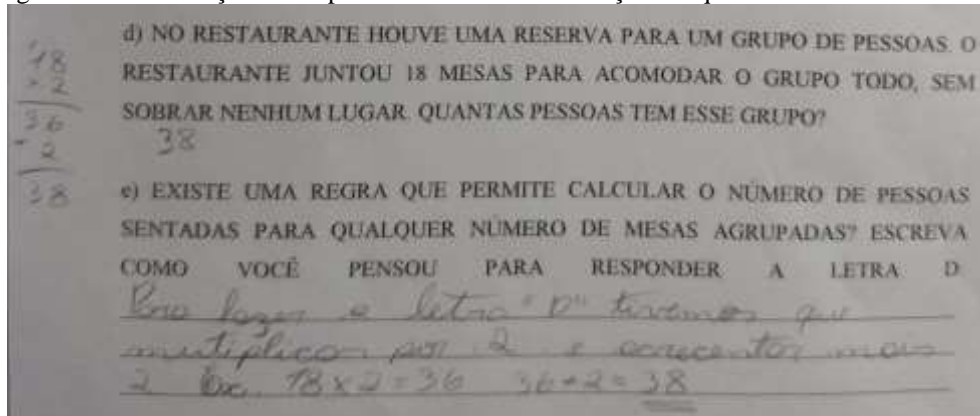 d) NO RESTAURANTE HOUVE UMA RESERVA PARA UM GRUPO DE PESSOAS. O
RESTAURANTE JUNTOU 18 MESAS PARA ACOMODAR O GRUPO TODO, SEM
SOBRAR NENHUM LUGAR. QUANTAS PESSOAS TEM ESSE GRUPO?
38
18
× 2
36
2
38
e) EXISTE UMA REGRA QUE PERMITE CALCULAR O NÚMERO DE PESSOAS
SENTADAS PARA QUALQUER NÚMERO DE MESAS AGRUPADAS? ESCREVA
COMO VOCÊ PENSOU PARA RESPONDER A LETRA D.
Para fazer a letra "D" tivemos que
multiplicar por 2 e acrecentar mais
2 Ex. 18 x 2 = 36 36 + 2 = 38